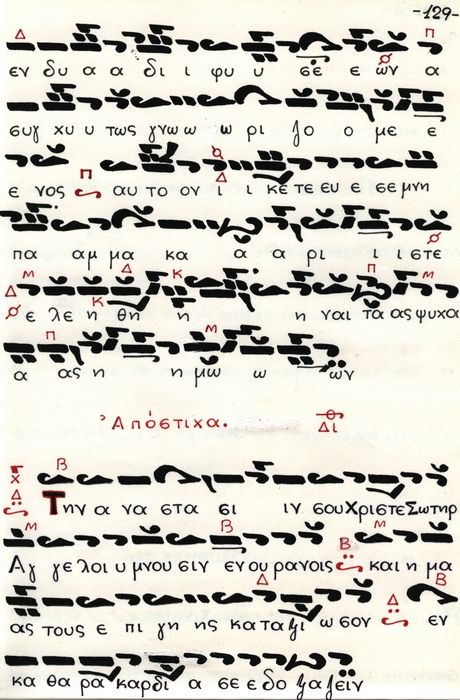 -129-
εν δυ α α δι ι φυ υ σε ε ων α
συγ χυ υ τως γνω ω ω ρι ζο ο με ε
ε νος αυ το ον ι ι κε τε ευ ε σε μνη
πα αμ μα κα α α ρι ι ι στε
ε λε η θη η η ναι τα ας ψυχα
α ας η η μω ω ων
Ἀπόστιχα. Δι
Την α να στα σι ιν σου Χριστε Σωτηρ
Αγ γε λοι υ μνου σιν εν ου ρανοις και η μα
ας τους ε πι γη ης κατα ξι ω σον εν
κα θα ρα καρδι α σε ε δο ξα ζειν